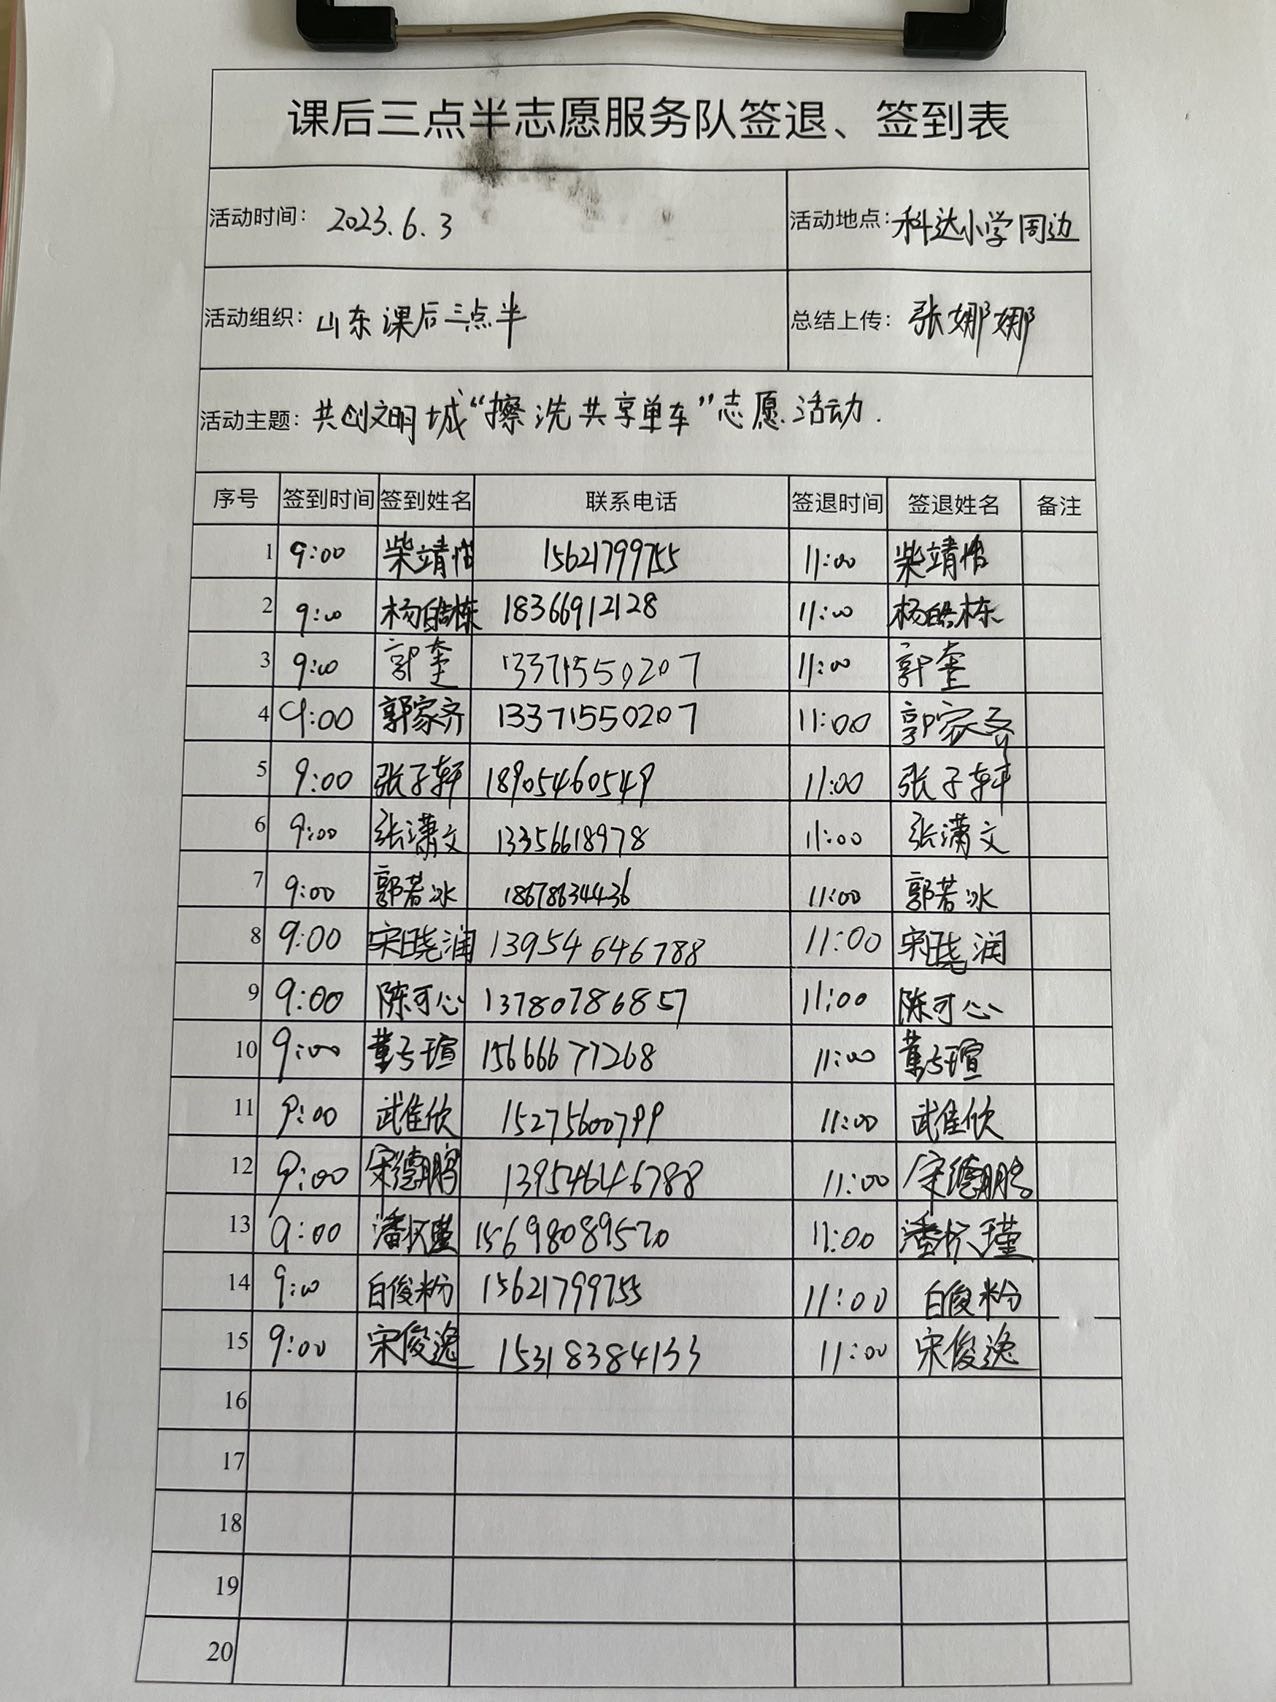 课后三点半志愿服务队签退、签到表
活动时间: 2023.6.3 活动地点: 科达小学周边
活动组织: 山东课后三点半 总结上传: 张娜娜
活动主题: 共创文明城“擦洗共享单车”志愿活动.
序号 签到时间 签到姓名 联系电话 签退时间 签退姓名 备注
1 9:00 柴靖怡 15621799755 11:00 柴靖怡
2 9:00 杨皓栋 18366912128 11:00 杨皓栋
3 9:00 郭奎 13371550207 11:00 郭奎
4 9:00 郭家齐 13371550207 11:00 郭家齐
5 9:00 张子轩 18905460549 11:00 张子轩
6 9:00 张潇文 13356618978 11:00 张潇文
7 9:00 郭若冰 18678634436 11:00 郭若冰
8 9:00 宋晓润 13954646788 11:00 宋晓润
9 9:00 陈可心 13780786857 11:00 陈可心
10 9:00 15666677268 11:00
11 9:00 武佳欣 15275600799 11:00 武佳欣
12 9:00 宋德鹏 13954646788 11:00 宋德鹏
13 9:00 15698089570 11:00
14 9:00 白俊粉 15621799755 11:00 白俊粉
15 9:00 宋俊逸 15318384133 11:00 宋俊逸
16
17
18
19
20